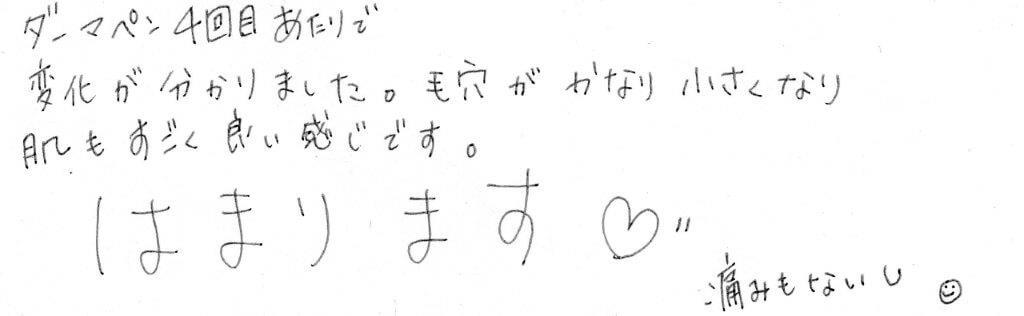 ダーマペン4回目あたりで
変化が分かりました。毛穴がかなり小さくなり
肌もすごく良い感じです。
はまります♡〃
痛みもないし☺